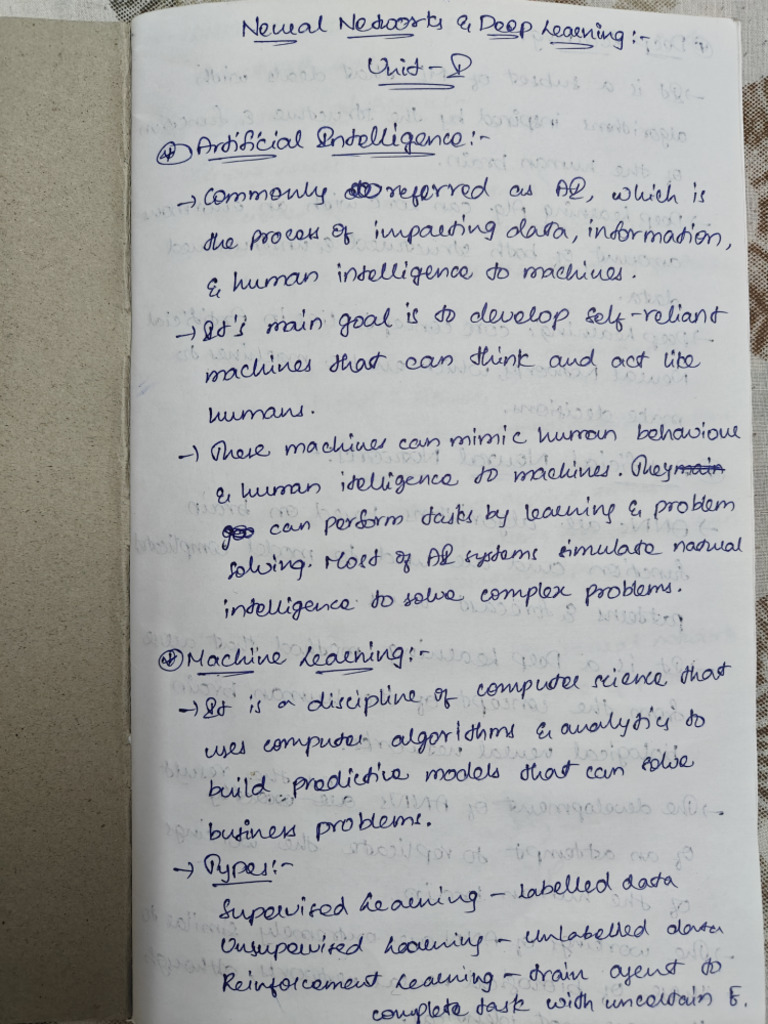 Neural Networks & Deep Learning:-
Unit-I
* Artificial Intelligence:-
→ Commonly referred as AI, which is
the process of imparting data, information,
& human intelligence to machines.
→ It's main goal is to develop self-reliant
machines that can think and act like
humans.
→ These machines can mimic human behaviour
& human itelligence to machines. They main
can perform tasks by learning & problem
solving. Most of AI systems simulate natural
intelligence to solve complex problems.
* Machine Learning:-
→ It is a discipline of computer science that
uses computer algorithms & analytics to
build predictive models that can solve
business problems.
→ Types:-
Supervised Learning - Labelled data
Unsupervised Learning - Unlabelled data
Reinforcement Learning - train agent to
complete task with uncertain E.